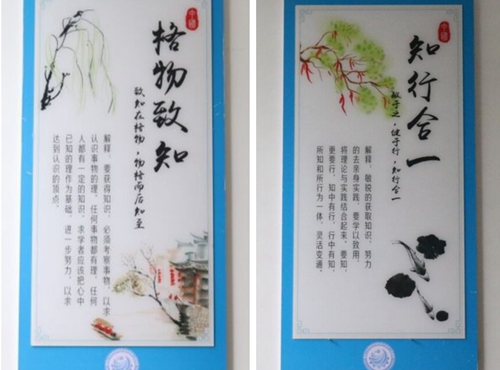 格物致知
致知在格物，物格而后知至
解释：要获得知识，必须考察事物，以求
认识事物的理。任何事物都有理，任何
人都有一定的知识，求学者应该把心中
已知的理作为基础，进一步努力，以求
达到认识的顶点。
知行合一
敏于之，健于行，知行合一
解释：敏锐的获取知识，努力
的去亲身实践，要学以致用，
将理论与实践结合起来。要知，
更要行，知中有行，行中有知，
所知和所行为一体，灵活变通。